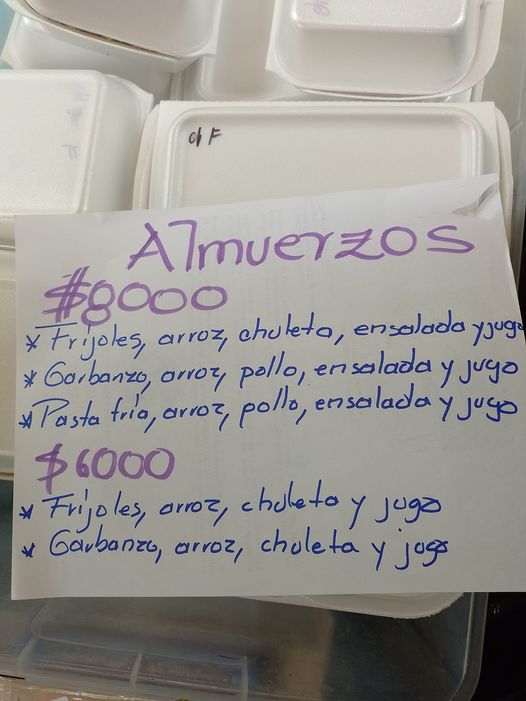 ch F
Almuerzos
$8000
* Frijoles, arroz, chuleta, ensalada y jugo
* Garbanzo, arroz, pollo, ensalada y jugo
* Pasta fria, arroz, pollo, ensalada y jugo
$6000
* Frijoles, arroz, chuleta y jugo
* Garbanzo, arroz, chuleta y jugo